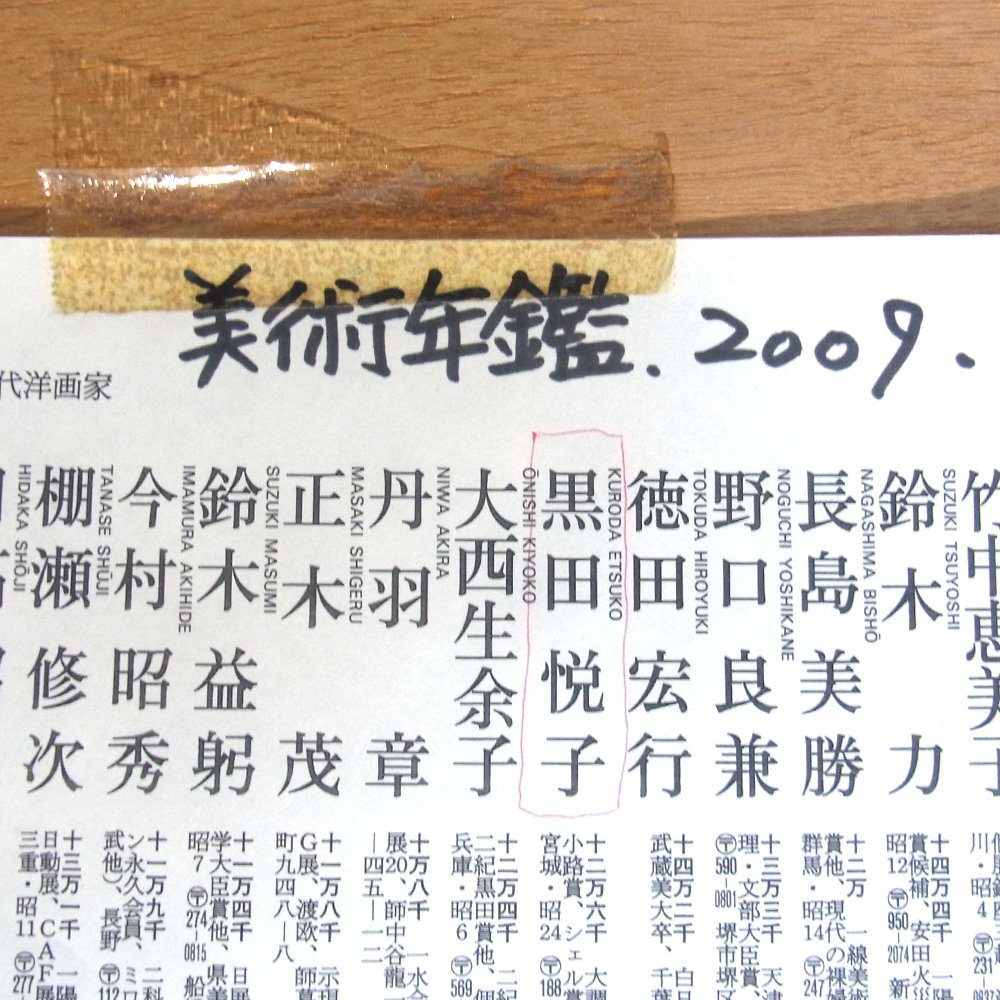 美術年鑑.2009.
代洋画家
竹中恵美子
川・昭4 〒231
SUZUKI TSUYOSHI
鈴木力
十四万四千
賞候補、安田火災
昭12 〒950-2074 新
NAGASHIMA BISHŌ
長島美勝
十二万 一線美術
賞他、現代の裸婦
群馬・昭14 〒247
NOGUCHI YOSHIKANE
野口良兼
十三万三千 天津
理・文部大臣賞、
〒590-0801 堺市堺区
TOKUDA HIROYUKI
徳田宏行
十四万二千 白日
武蔵美大卒、千葉
KURODA ETSUKO
黒田悦子
十二万六千 大調
小路賞、シェル賞
宮城・昭24 〒188
ŌNISHI KIYOKO
大西生余子
十二万四千 二紀
二紀黒田賞他、個
兵庫・昭6 〒569
NIWA AKIRA
丹羽章
十万八千 一水会
展20、師中谷龍一
―四五―一二
MASAKI SHIGERU
正木茂
十一万八千 示現
G展、渡欧、師
町九四八―八
SUZUKI MASUMI
鈴木益躬
十一万四千 日展
学大臣賞他、県美
昭7 〒274-0815 船
IMAMURA AKIHIDE
今村昭秀
十一万九千 二科
ン永久会員、ミロ
武他)、長野 〒112
TANASE SHŪJI
棚瀬修次
十三万一千 一陽
日動展、CAF展
三重・昭11 〒277-
HIDAKA SHŌJI